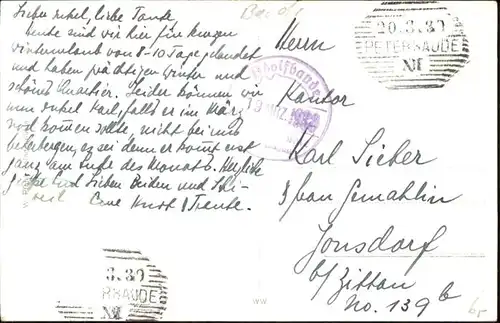 Lieber Onkel, liebe Tante
heute sind wir hier für kurzen
Winterurlaub von 8-10 Tage gelandet
und haben prächtigen Winter und
schönes Quartier. Leider können wir
nun Onkel Karl, falls er im März
noch kommen sollte, nicht bei uns
beherbergen, es sei denn er kommt erst
ganz am Ende des Monats. Herzliche
Grüße Euch Lieben Beiden und Ski-
heil Eure Kurt & Trente.
Herrn
Kantor
Karl Sieber
& frau Gemahlin
Jonsdorf
b/Zittau
No. 139 b
20.3.39
PETERBAUDE
XII
3.39
RBAUDE
XII